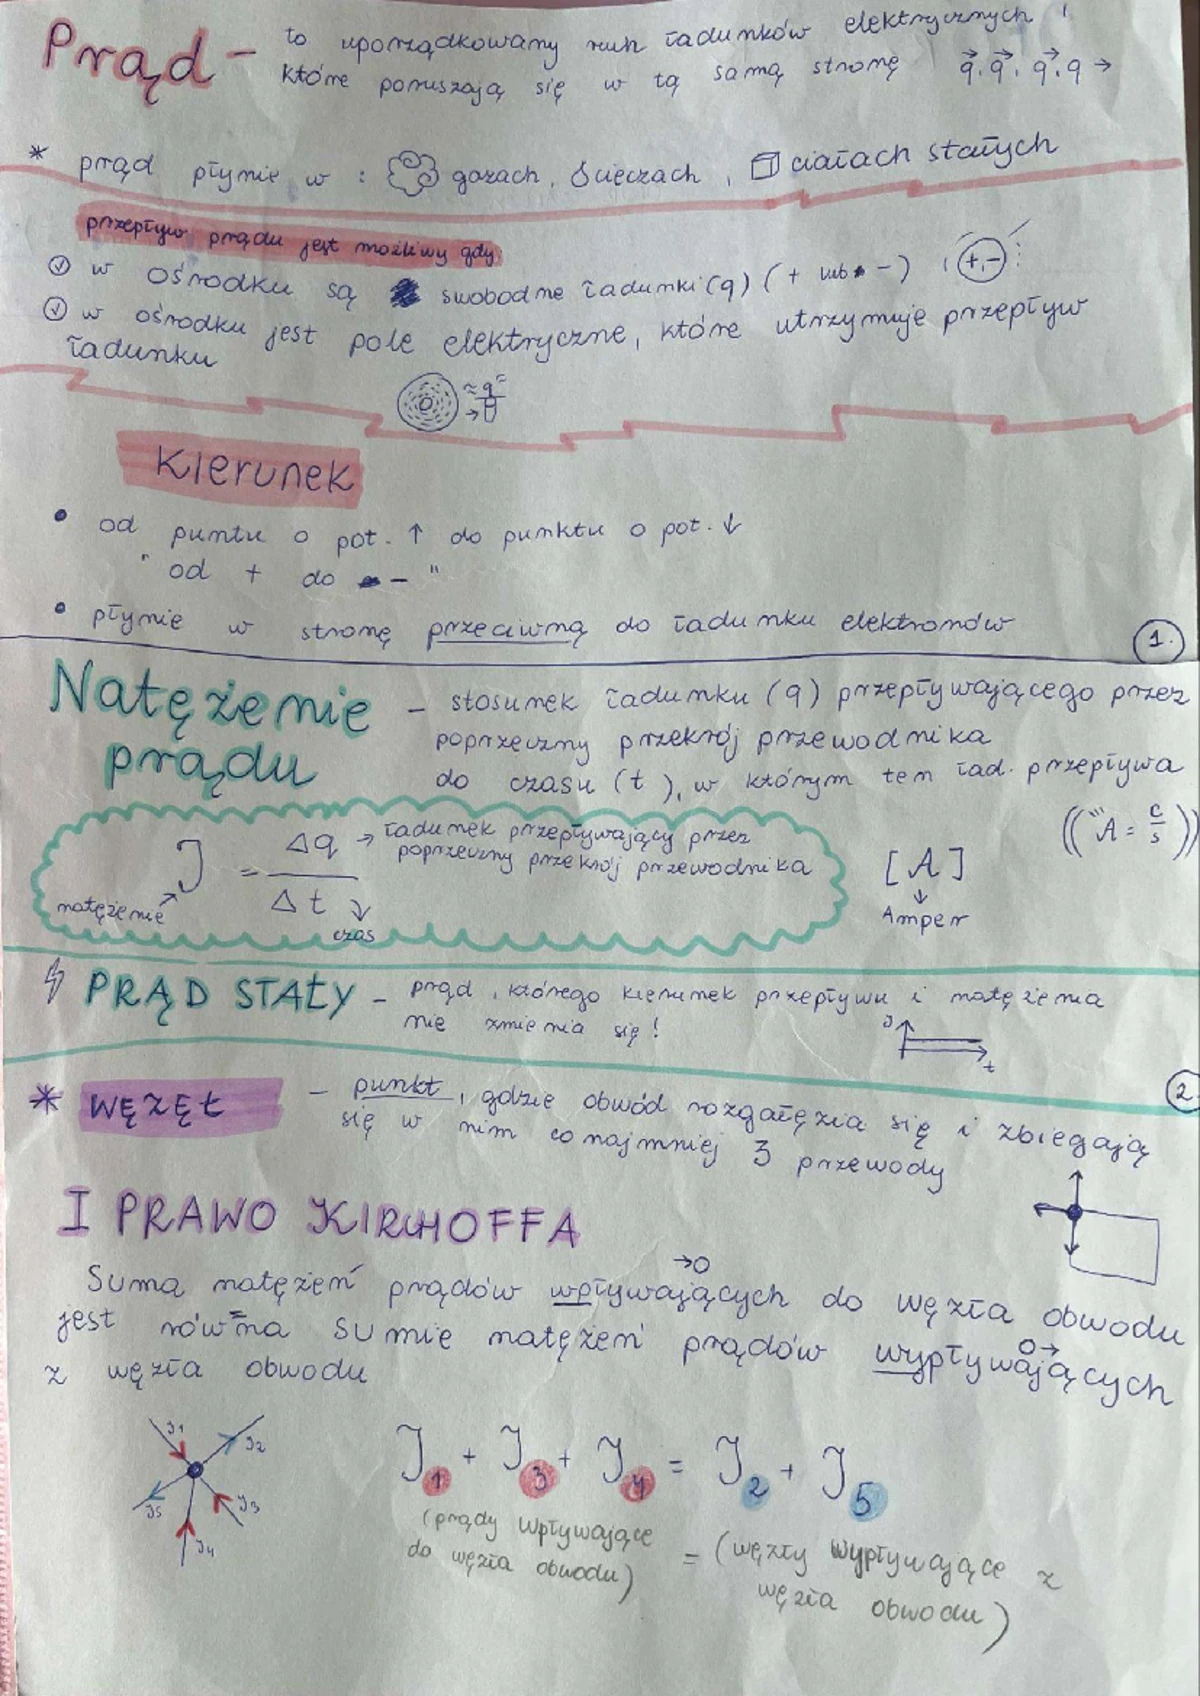 Prąd - to uporządkowany ruh ładunków elektrycznych,
które poruszają się w tą samą stronę q, q, q, q →
* prąd płynie w : gazach, cieczach, ciałach stałych
przepływ prądu jest możliwy gdy:
w ośrodku są swobodne ładunki (q) (+ lub -) , +,-
w ośrodku jest pole elektryczne, które utrzymuje przepływ
ładunku
Kierunek
• od puntu o pot. ↑ do punktu o pot. ↓
" od + do - "
• płynie w stronę przeciwną do ładunku elektronów
1.
Natężenie prądu - stosunek ładunku (q) przepływającego przez
poprzeczny przekrój przewodnika
do czasu (t), w którym ten ład. przepływa
((A = C/s))
J = Δq / Δt
Δq → ładunek przepływający przez
poprzeczny przekrój przewodnika
natężenie
czas
[A]
↓
Amper
PRĄD STAŁY - prąd, którego kierunek przepływu i natężenia
nie zmienia się!
J
t
2.
* WĘZĘŁ - punkt, gdzie obwód rozgałęzia się i zbiegają
się w nim co najmniej 3 przewody
I PRAWO KIRHOFFA
→O
Suma natężeń prądów wpływających do węzła obwodu
jest równa sumie natężeń prądów wypływających
O→
z węzła obwodu
J1 J2 J3 J4 J5
J1 + J3 + J4 = J2 + J5
(prądy wpływające
do węzła obwodu)
= (węzły wypływające z
węzła obwodu)